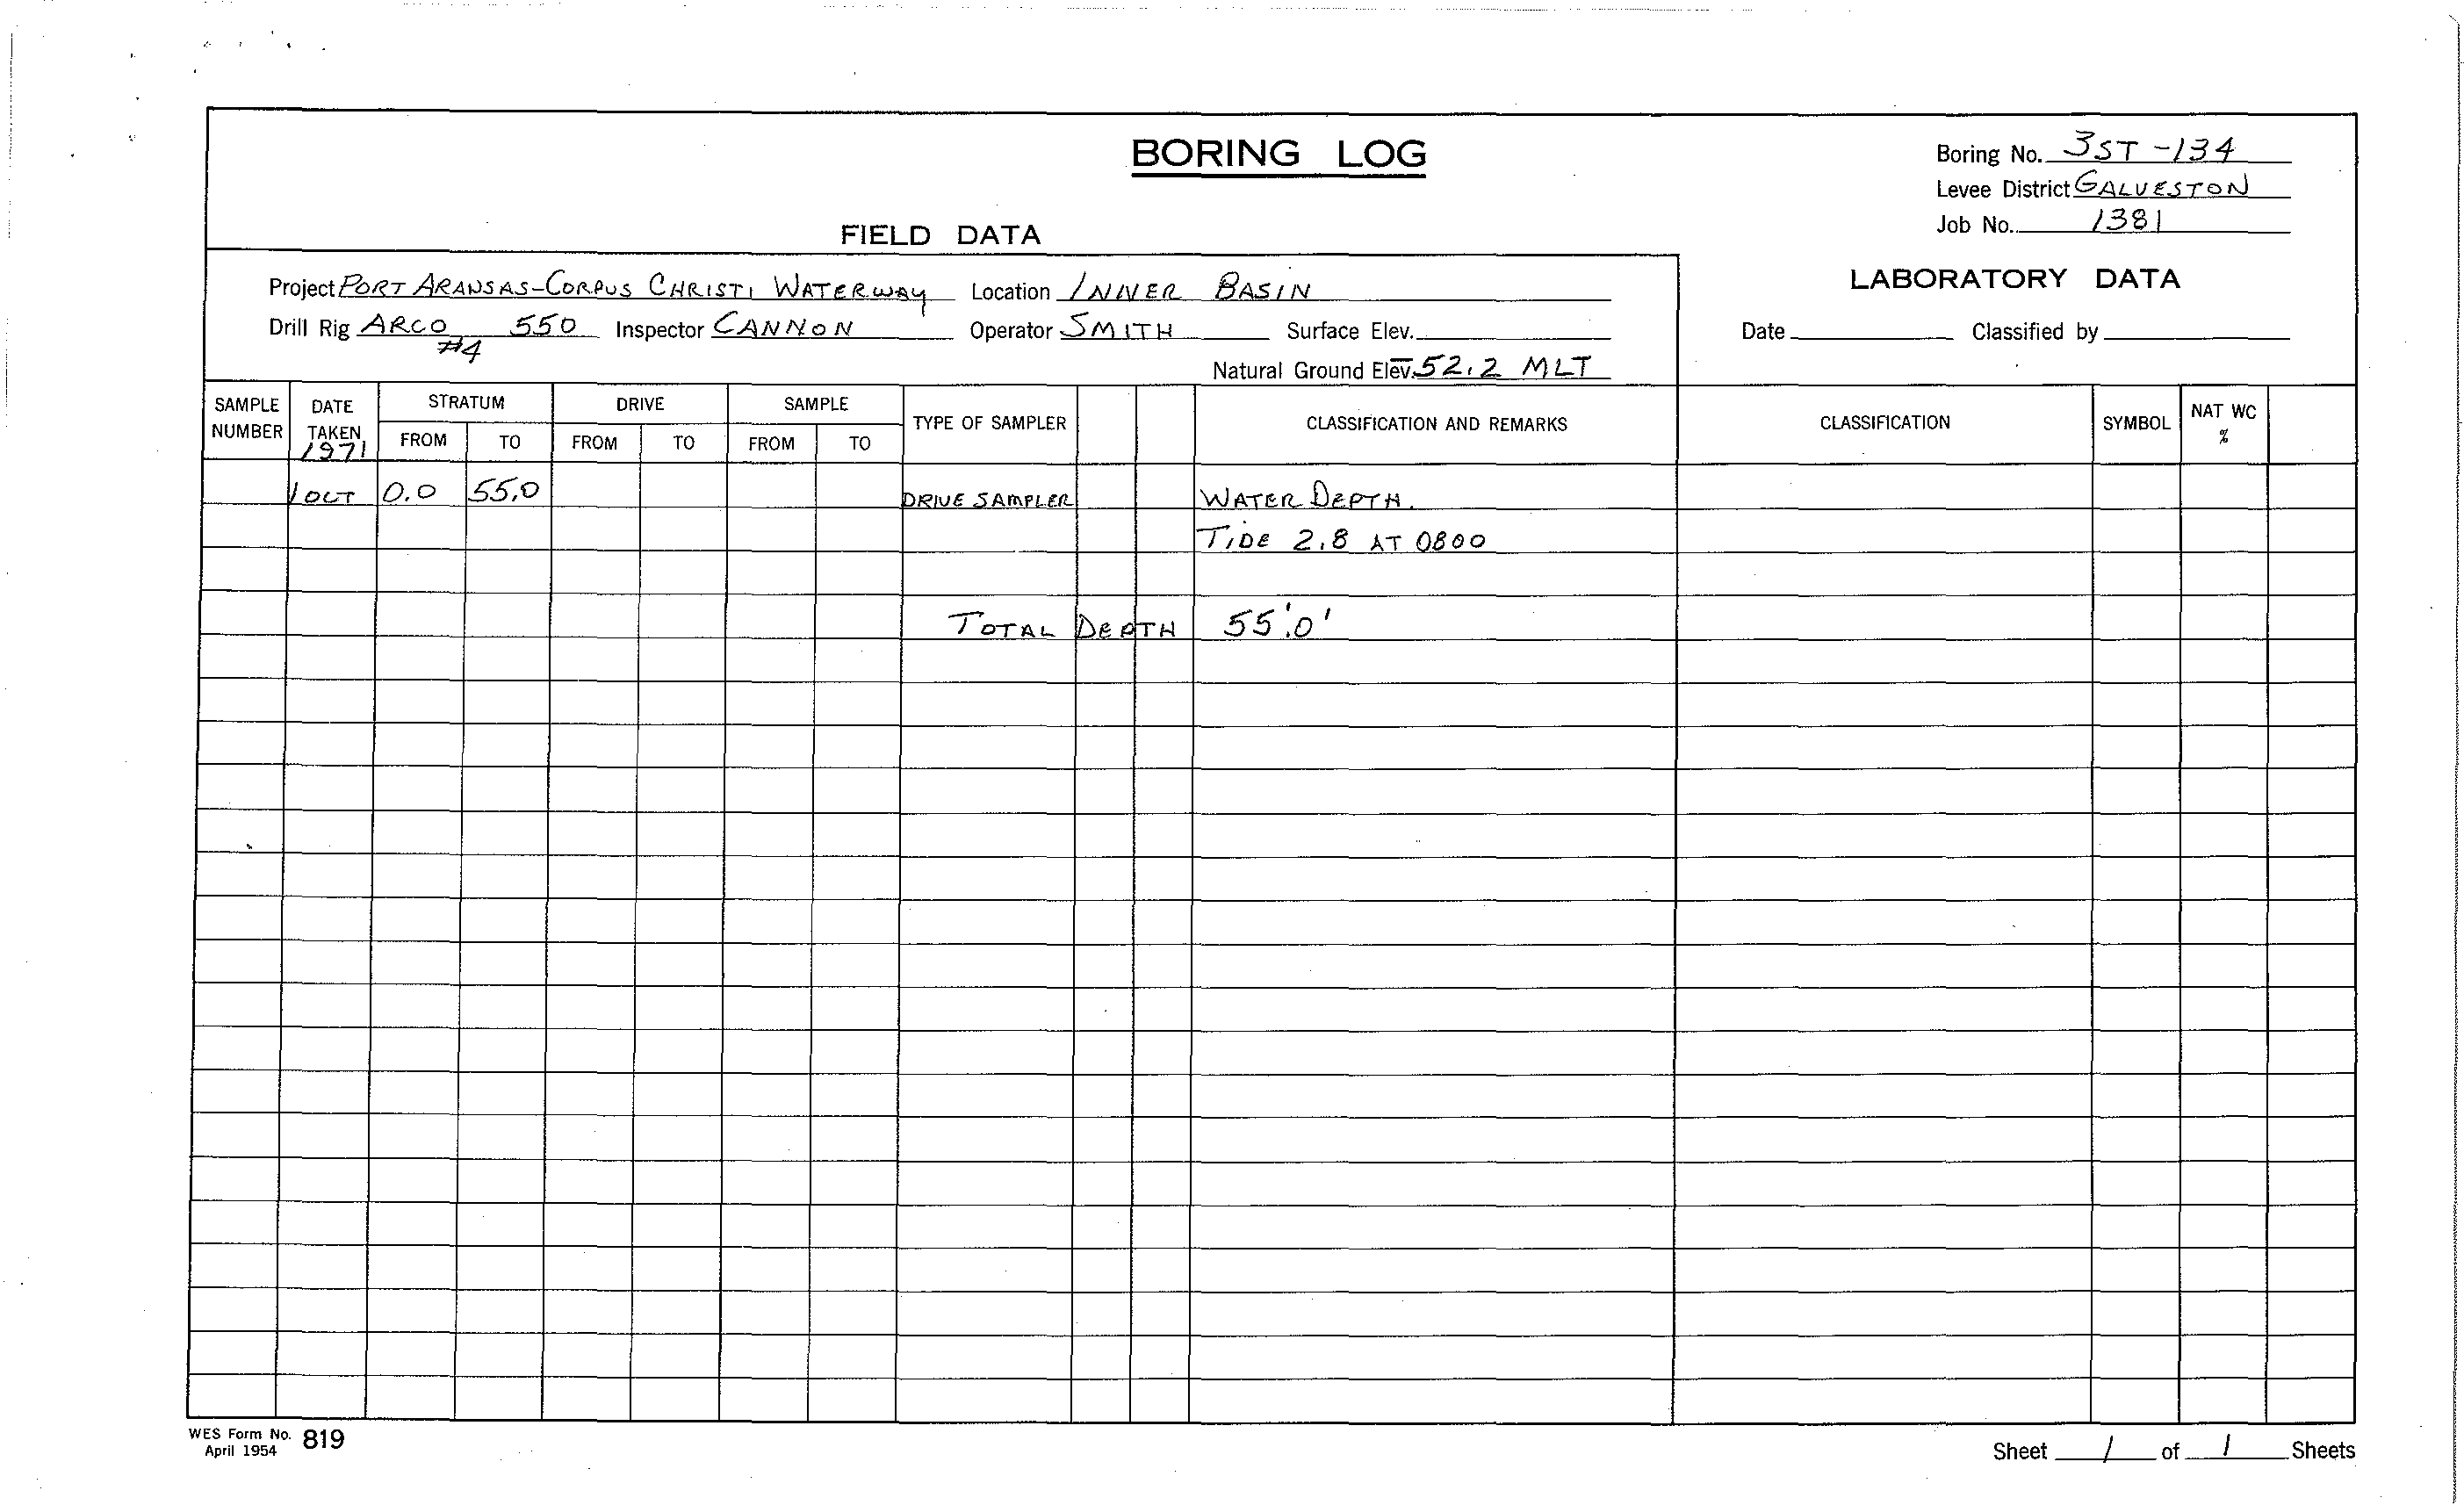 BORING LOG
Boring No. 3ST-134
Levee District GALVESTON
Job No. 1381
FIELD DATA
LABORATORY DATA
Project PORT ARANSAS-CORPUS CHRISTI WATERWAY Location INNER BASIN
Drill Rig ARCO #4 550 Inspector CANNON Operator SMITH Surface Elev.
Date Classified by
Natural Ground Elev. -52.2 MLT
SAMPLE NUMBER DATE TAKEN 1971 STRATUM FROM TO DRIVE FROM TO SAMPLE FROM TO TYPE OF SAMPLER CLASSIFICATION AND REMARKS CLASSIFICATION SYMBOL NAT WC %
1 OCT 0.0 55.0 DRIVE SAMPLER WATER DEPTH.
TIDE 2.8 AT 0800
TOTAL DEPTH 55'.0'
WES Form No. 819
April 1954
Sheet 1 of 1 Sheets